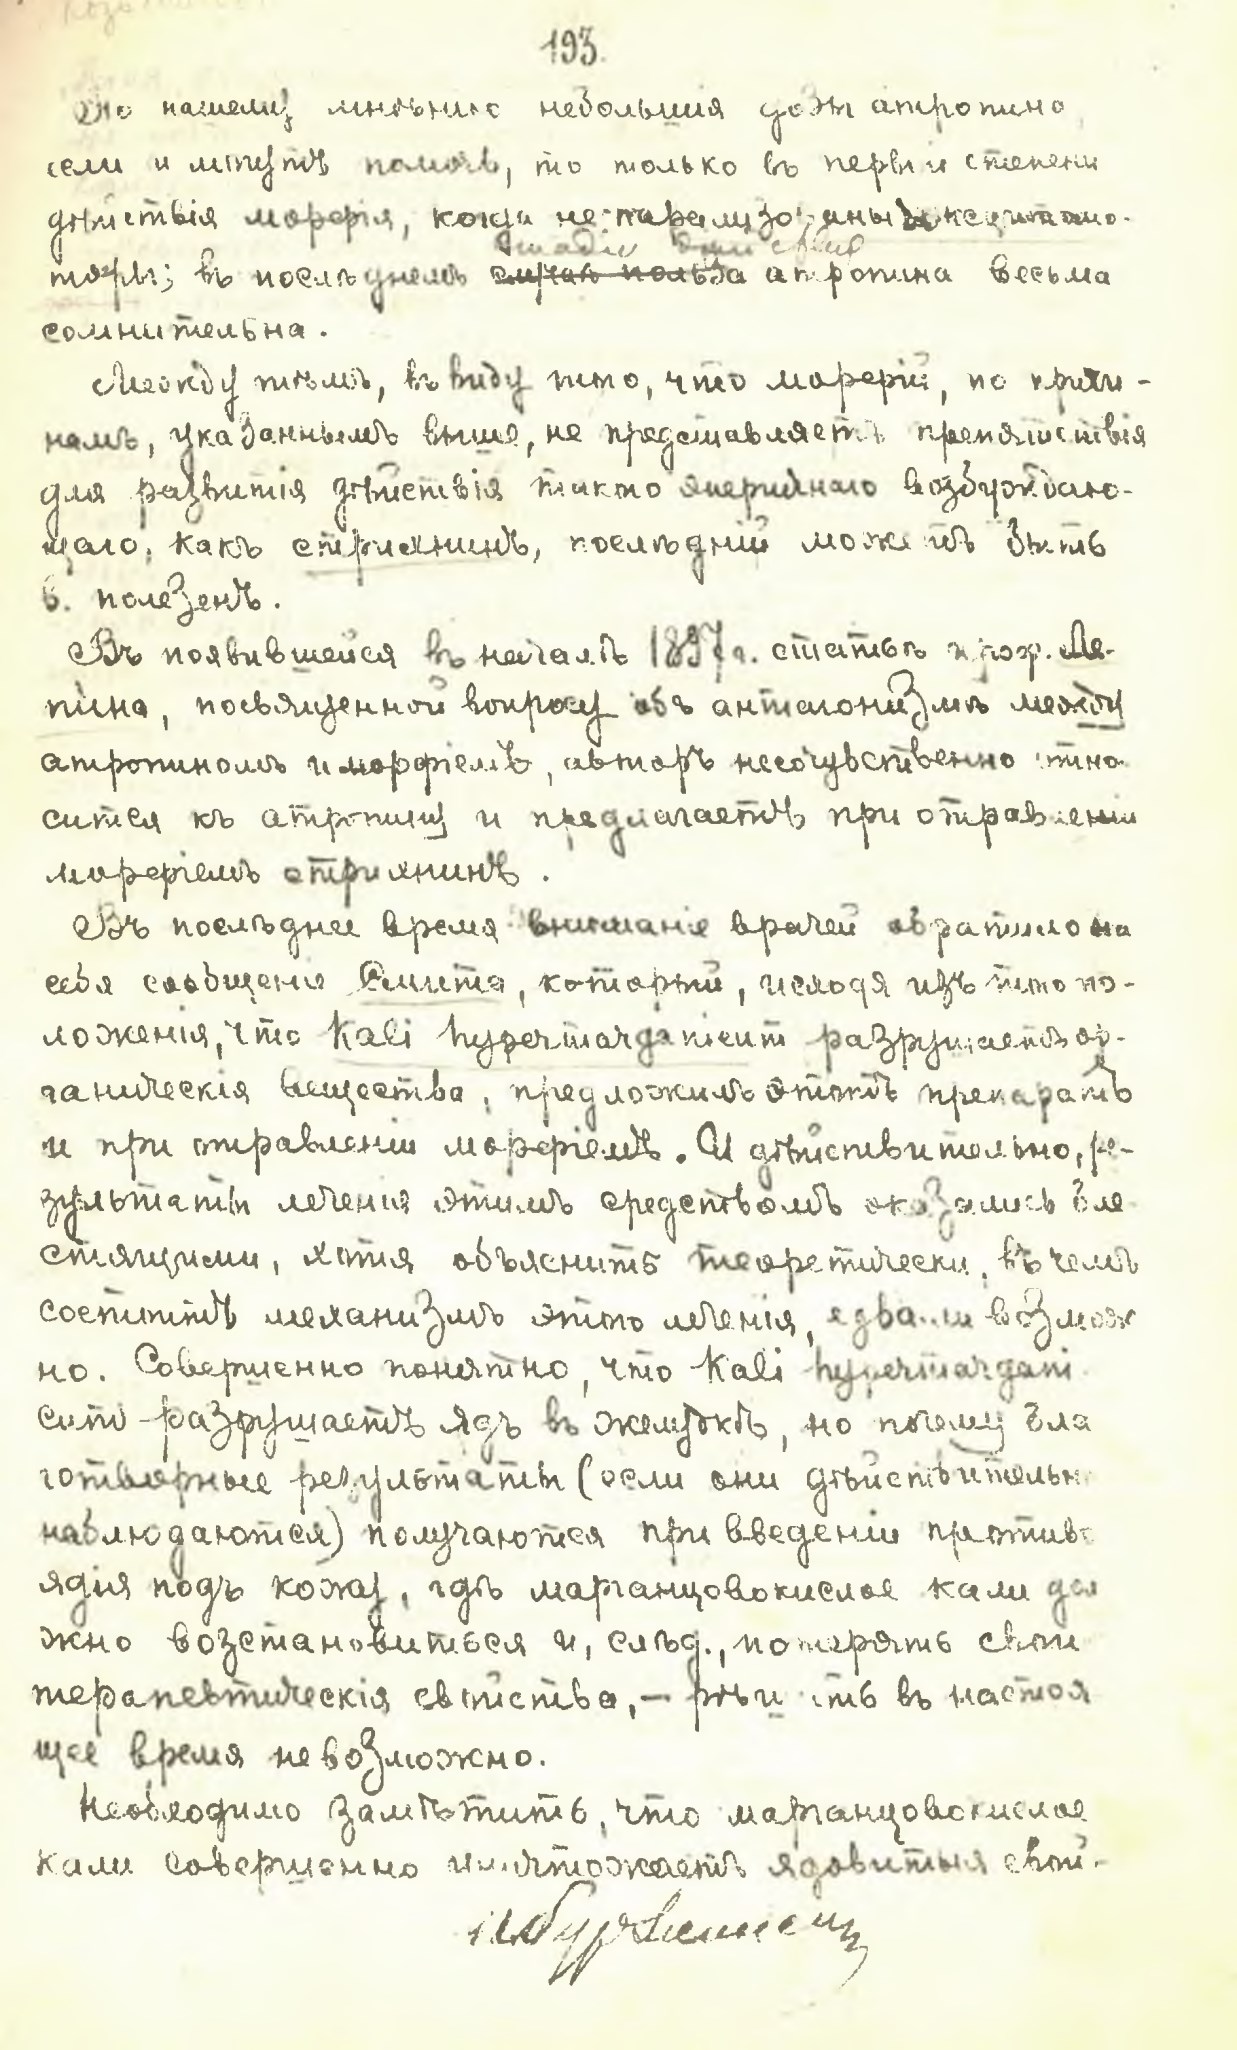 193.
По нашему мнѣнию небольшія дозы атропина,
если и могутъ помочь, то только въ первыя степени
дѣйствія морфія, когда не парализованы эксцитато-
торы; въ послѣднемъ случаѣ польза атропина весьма
сомнительна.
Между тѣмъ, въ виду того, что морфій, по причи-
намъ, указаннымъ выше, не представляетъ препятствія
для развитія дѣйствія такого энергичнаго возбуждаю-
щаго, какъ стрихнинъ, послѣдній можетъ быть
б. полезенъ.
Въ появившейся въ началѣ 1897 г. статьѣ проф. Ле-
пина, посвященной вопросу объ антагонизмѣ между
атропиномъ и морфіемъ, авторъ несочувственно отно
сится къ атропину и предлагаетъ при отравленіи
морфіемъ стрихнинъ.
Въ послѣднее время вниманіе врачей обратило на
себя сообщеніе Смита, который, исходя изъ того по-
ложенія, что Kali hypermanganicum разрушаетъ ор-
ганическія вещества, предложилъ этотъ препаратъ
и при отравленіи морфіемъ. И дѣйствительно, ре-
зультаты леченія этимъ средствомъ оказались бле
стящими, хотя объяснить теоретически, въ чемъ
состоитъ механизмъ этого леченія, едва ли возмож
но. Совершенно понятно, что Kali hypermangani
cum разрушаетъ ядъ въ желудкѣ, но почему бла
готворные результаты (если они дѣйствительно
наблюдаются) получаются при введеніи противо
ядія подъ кожу, гдѣ марганцовокислое кали дол
жно возстановиться и, слѣд., потерять свои
терапевтическія свойства, — рѣшить въ настоя
щее время невозможно.
Необходимо замѣтить, что марганцовокислое
кали совершенно уничтожаетъ ядовитыя свой-